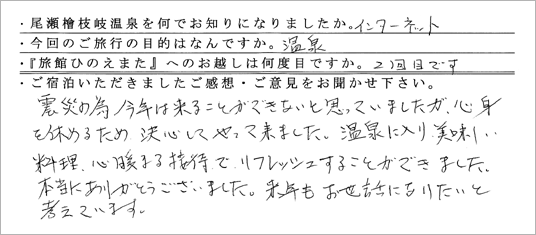 ・尾瀬檜枝岐温泉を何でお知りになりましたか。インターネット
・今回のご旅行の目的はなんですか。温泉
・『旅館ひのえまた』へのお越しは何度目ですか。2回目です
・ご宿泊いただきましたご感想・ご意見をお聞かせ下さい。
震災の為今年は来ることができないと思っていましたが、心身
を休めるため決心してやって来ました。温泉に入り、美味しい
料理、心暖まる接待で、リフレッシュすることができました。
本当にありがとうございました。来年もお世話になりたいと
考えています。